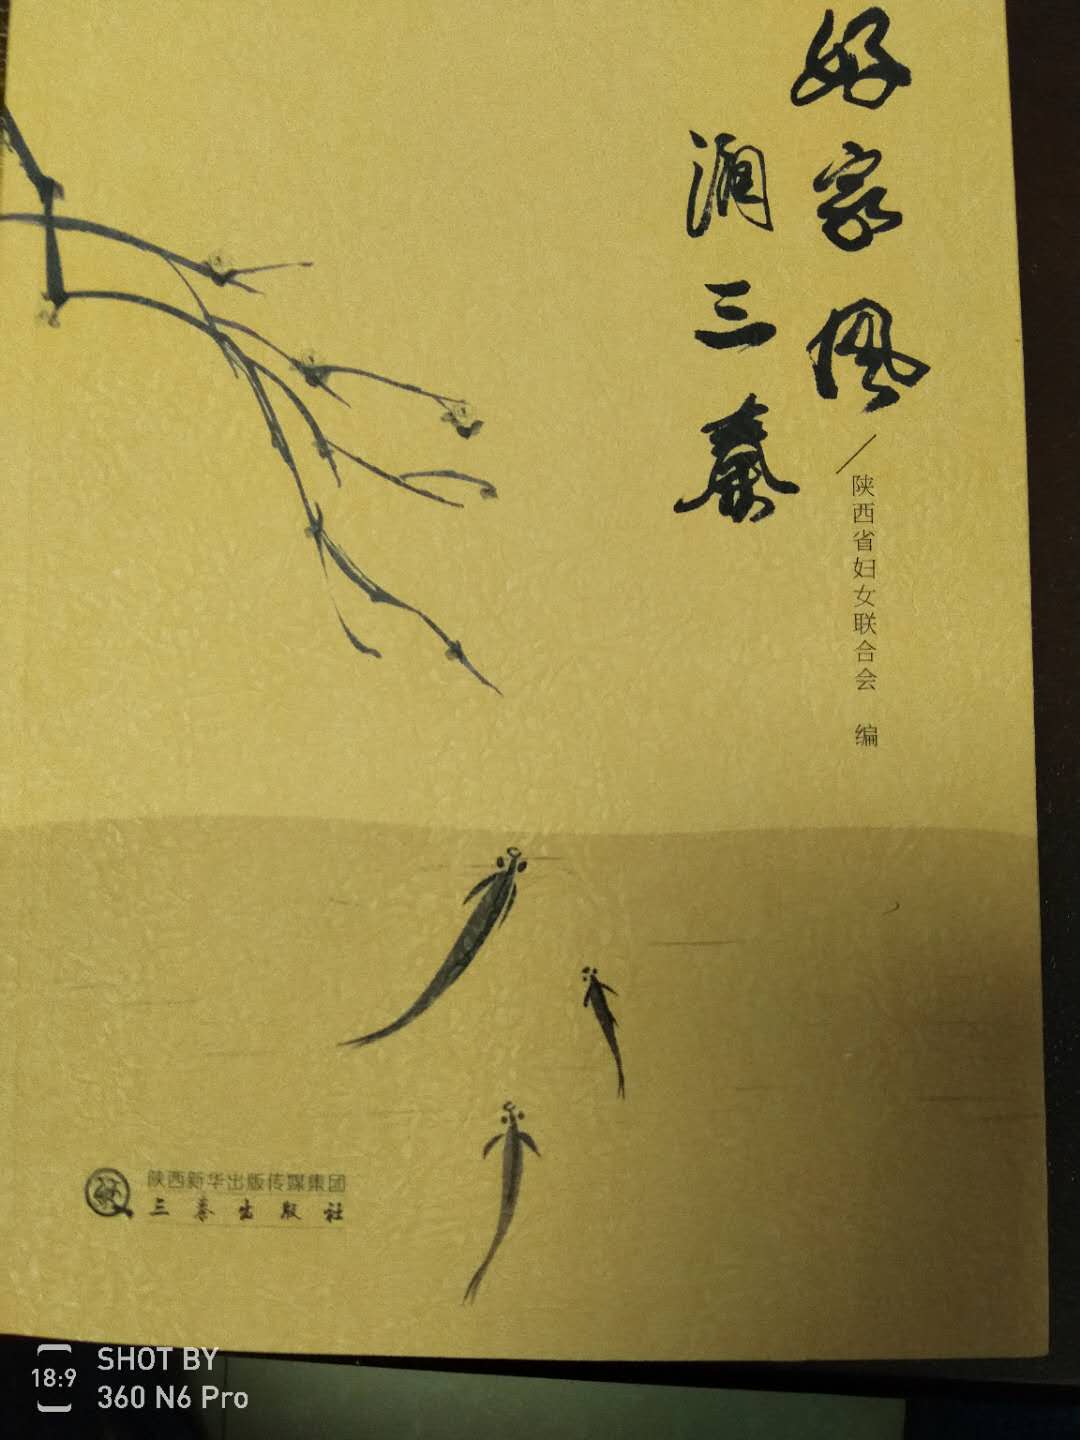 好家风
润三秦
陕西省妇女联合会 编
陕西新华出版传媒集团
三秦出版社
18:9
SHOT BY
360 N6 Pro